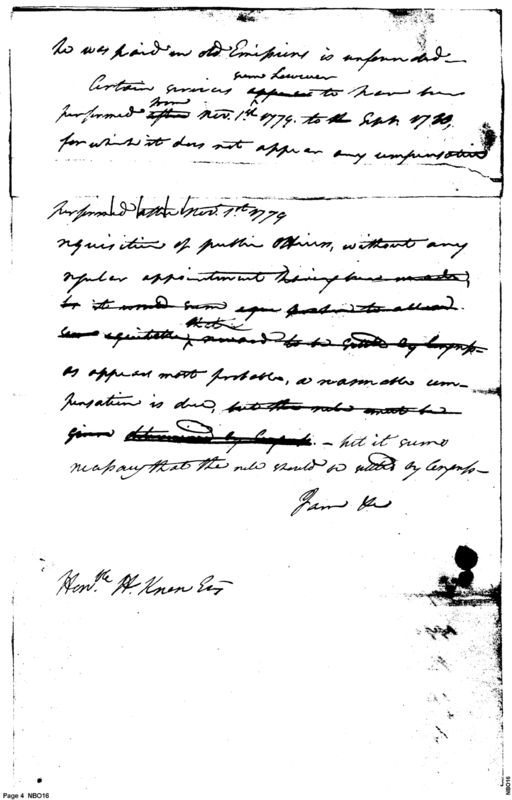 he was paid in old Emissions is unfounded—
seem however
Certain services appear to have been
from
performed after Nov. 1st 1779. to the Sept. 1780,
for which it does not appear any compensation
performed after Nov. 1st 1779
requisition of public Officers, without any
regular appointment having been made,
to it would seem
that a
equitable, reward to be settled by Congress
as appears most probable, a reasonable com-
pensation is due, but the rule must be
given determined by Congress. — but it seems
necessary that the rule should be settled by Congress—
I am &c
Honble H. Knox Esq
Page 4 NBO16
NBO16